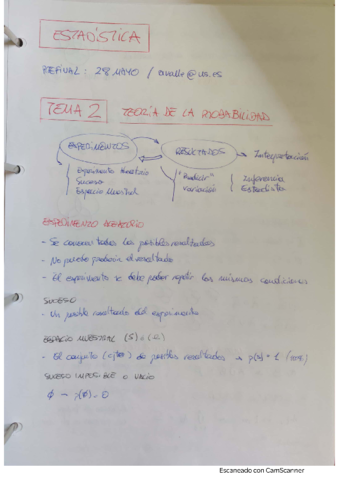 ESTADÍSTICA
PEFINAL: 28 MAYO / @us.es
TEMA 2 TEORÍA DE LA PROBABILIDAD
EXPERIMENTOS RESULTADOS → Interpretación
Experimento Aleatorio "Predicir" Inferencia
Suceso variación Estadística
Espacio Muestral
EXPERIMENTO ALEATORIO
- Se conocen todos los posibles resultados
- No puedo predecir el resultado
- El experimento se debe poder repetir las mismas condiciones
SUCESO
- Un posible resultado del experimento
ESPACIO MUESTRAL (S)
- El conjunto de posibles resultados → p(S) = 1
SUCESO IMPOSIBLE o VACIO
∅ → p(∅) = 0
Escaneado con CamScanner